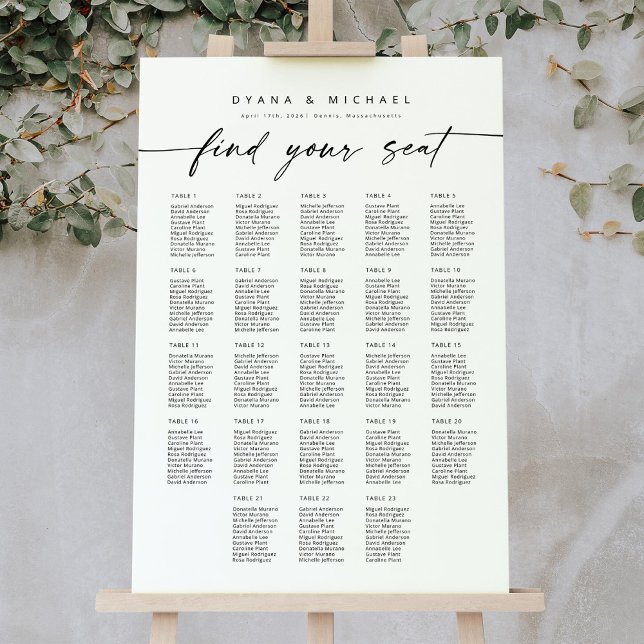 DYANA & MICHAEL
April 17th, 2026| Dennis, Massachusetts
find your seat
TABLE 1
Gabriel Anderson
David Anderson
Annabelle Lee
Gustave Plant
Caroline Plant
Miguel Rodriguez
Rosa Rodriguez
Donatella Murano
Victor Murano
Michelle Jefferson
TABLE 2
Miguel Rodriguez
Rosa Rodriguez
Donatella Murano
Victor Murano
Michelle Jefferson
Gabriel Anderson
David Anderson
Annabelle Lee
Gustave Plant
Caroline Plant
TABLE 3
Michelle Jefferson
Gabriel Anderson
David Anderson
Annabelle Lee
Gustave Plant
Caroline Plant
Miguel Rodriguez
Rosa Rodriguez
Donatella Murano
Victor Murano
TABLE 4
Gustave Plant
Caroline Plant
Miguel Rodriguez
Rosa Rodriguez
Donatella Murano
Victor Murano
Michelle Jefferson
Gabriel Anderson
David Anderson
Annabelle Lee
TABLE 5
Annabelle Lee
Gustave Plant
Caroline Plant
Miguel Rodriguez
Rosa Rodriguez
Donatella Murano
Victor Murano
Michelle Jefferson
Gabriel Anderson
David Anderson
TABLE 6
Gustave Plant
Caroline Plant
Miguel Rodriguez
Rosa Rodriguez
Donatella Murano
Victor Murano
Michelle Jefferson
Gabriel Anderson
David Anderson
Annabelle Lee
TABLE 7
Gabriel Anderson
David Anderson
Annabelle Lee
Gustave Plant
Caroline Plant
Miguel Rodriguez
Rosa Rodriguez
Donatella Murano
Victor Murano
Michelle Jefferson
TABLE 8
Miguel Rodriguez
Rosa Rodriguez
Donatella Murano
Victor Murano
Michelle Jefferson
Gabriel Anderson
David Anderson
Annabelle Lee
Gustave Plant
Caroline Plant
TABLE 9
Annabelle Lee
Gustave Plant
Caroline Plant
Miguel Rodriguez
Rosa Rodriguez
Donatella Murano
Victor Murano
Michelle Jefferson
Gabriel Anderson
David Anderson
TABLE 10
Donatella Murano
Victor Murano
Michelle Jefferson
Gabriel Anderson
David Anderson
Annabelle Lee
Gustave Plant
Caroline Plant
Miguel Rodriguez
Rosa Rodriguez
TABLE 11
Donatella Murano
Victor Murano
Michelle Jefferson
Gabriel Anderson
David Anderson
Annabelle Lee
Gustave Plant
Caroline Plant
Miguel Rodriguez
Rosa Rodriguez
TABLE 12
Michelle Jefferson
Gabriel Anderson
David Anderson
Annabelle Lee
Gustave Plant
Caroline Plant
Miguel Rodriguez
Rosa Rodriguez
Donatella Murano
Victor Murano
TABLE 13
Gustave Plant
Caroline Plant
Miguel Rodriguez
Rosa Rodriguez
Donatella Murano
Victor Murano
Michelle Jefferson
Gabriel Anderson
David Anderson
Annabelle Lee
TABLE 14
Michelle Jefferson
Gabriel Anderson
David Anderson
Annabelle Lee
Gustave Plant
Caroline Plant
Miguel Rodriguez
Rosa Rodriguez
Donatella Murano
Victor Murano
TABLE 15
Miguel Rodriguez
Rosa Rodriguez
Donatella Murano
Victor Murano
Michelle Jefferson
Gabriel Anderson
David Anderson
Annabelle Lee
Gustave Plant
Caroline Plant
TABLE 16
Annabelle Lee
Gustave Plant
Caroline Plant
Miguel Rodriguez
Rosa Rodriguez
Donatella Murano
Victor Murano
Michelle Jefferson
Gabriel Anderson
David Anderson
TABLE 17
Miguel Rodriguez
Rosa Rodriguez
Donatella Murano
Victor Murano
Michelle Jefferson
Gabriel Anderson
David Anderson
Annabelle Lee
Gustave Plant
Caroline Plant
TABLE 18
Gabriel Anderson
David Anderson
Annabelle Lee
Gustave Plant
Caroline Plant
Miguel Rodriguez
Rosa Rodriguez
Donatella Murano
Victor Murano
Michelle Jefferson
TABLE 19
Gustave Plant
Caroline Plant
Miguel Rodriguez
Rosa Rodriguez
Donatella Murano
Victor Murano
Michelle Jefferson
Gabriel Anderson
David Anderson
Annabelle Lee
TABLE 20
Donatella Murano
Victor Murano
Michelle Jefferson
Gabriel Anderson
David Anderson
Annabelle Lee
Gustave Plant
Caroline Plant
Miguel Rodriguez
Rosa Rodriguez
TABLE 21
Donatella Murano
Victor Murano
Michelle Jefferson
Gabriel Anderson
David Anderson
Annabelle Lee
Gustave Plant
Caroline Plant
Miguel Rodriguez
Rosa Rodriguez
TABLE 22
Gabriel Anderson
David Anderson
Annabelle Lee
Gustave Plant
Caroline Plant
Miguel Rodriguez
Rosa Rodriguez
Donatella Murano
Victor Murano
Michelle Jefferson
TABLE 23
Miguel Rodriguez
Rosa Rodriguez
Donatella Murano
Victor Murano
Michelle Jefferson
Gabriel Anderson
David Anderson
Annabelle Lee
Gustave Plant
Caroline Plant